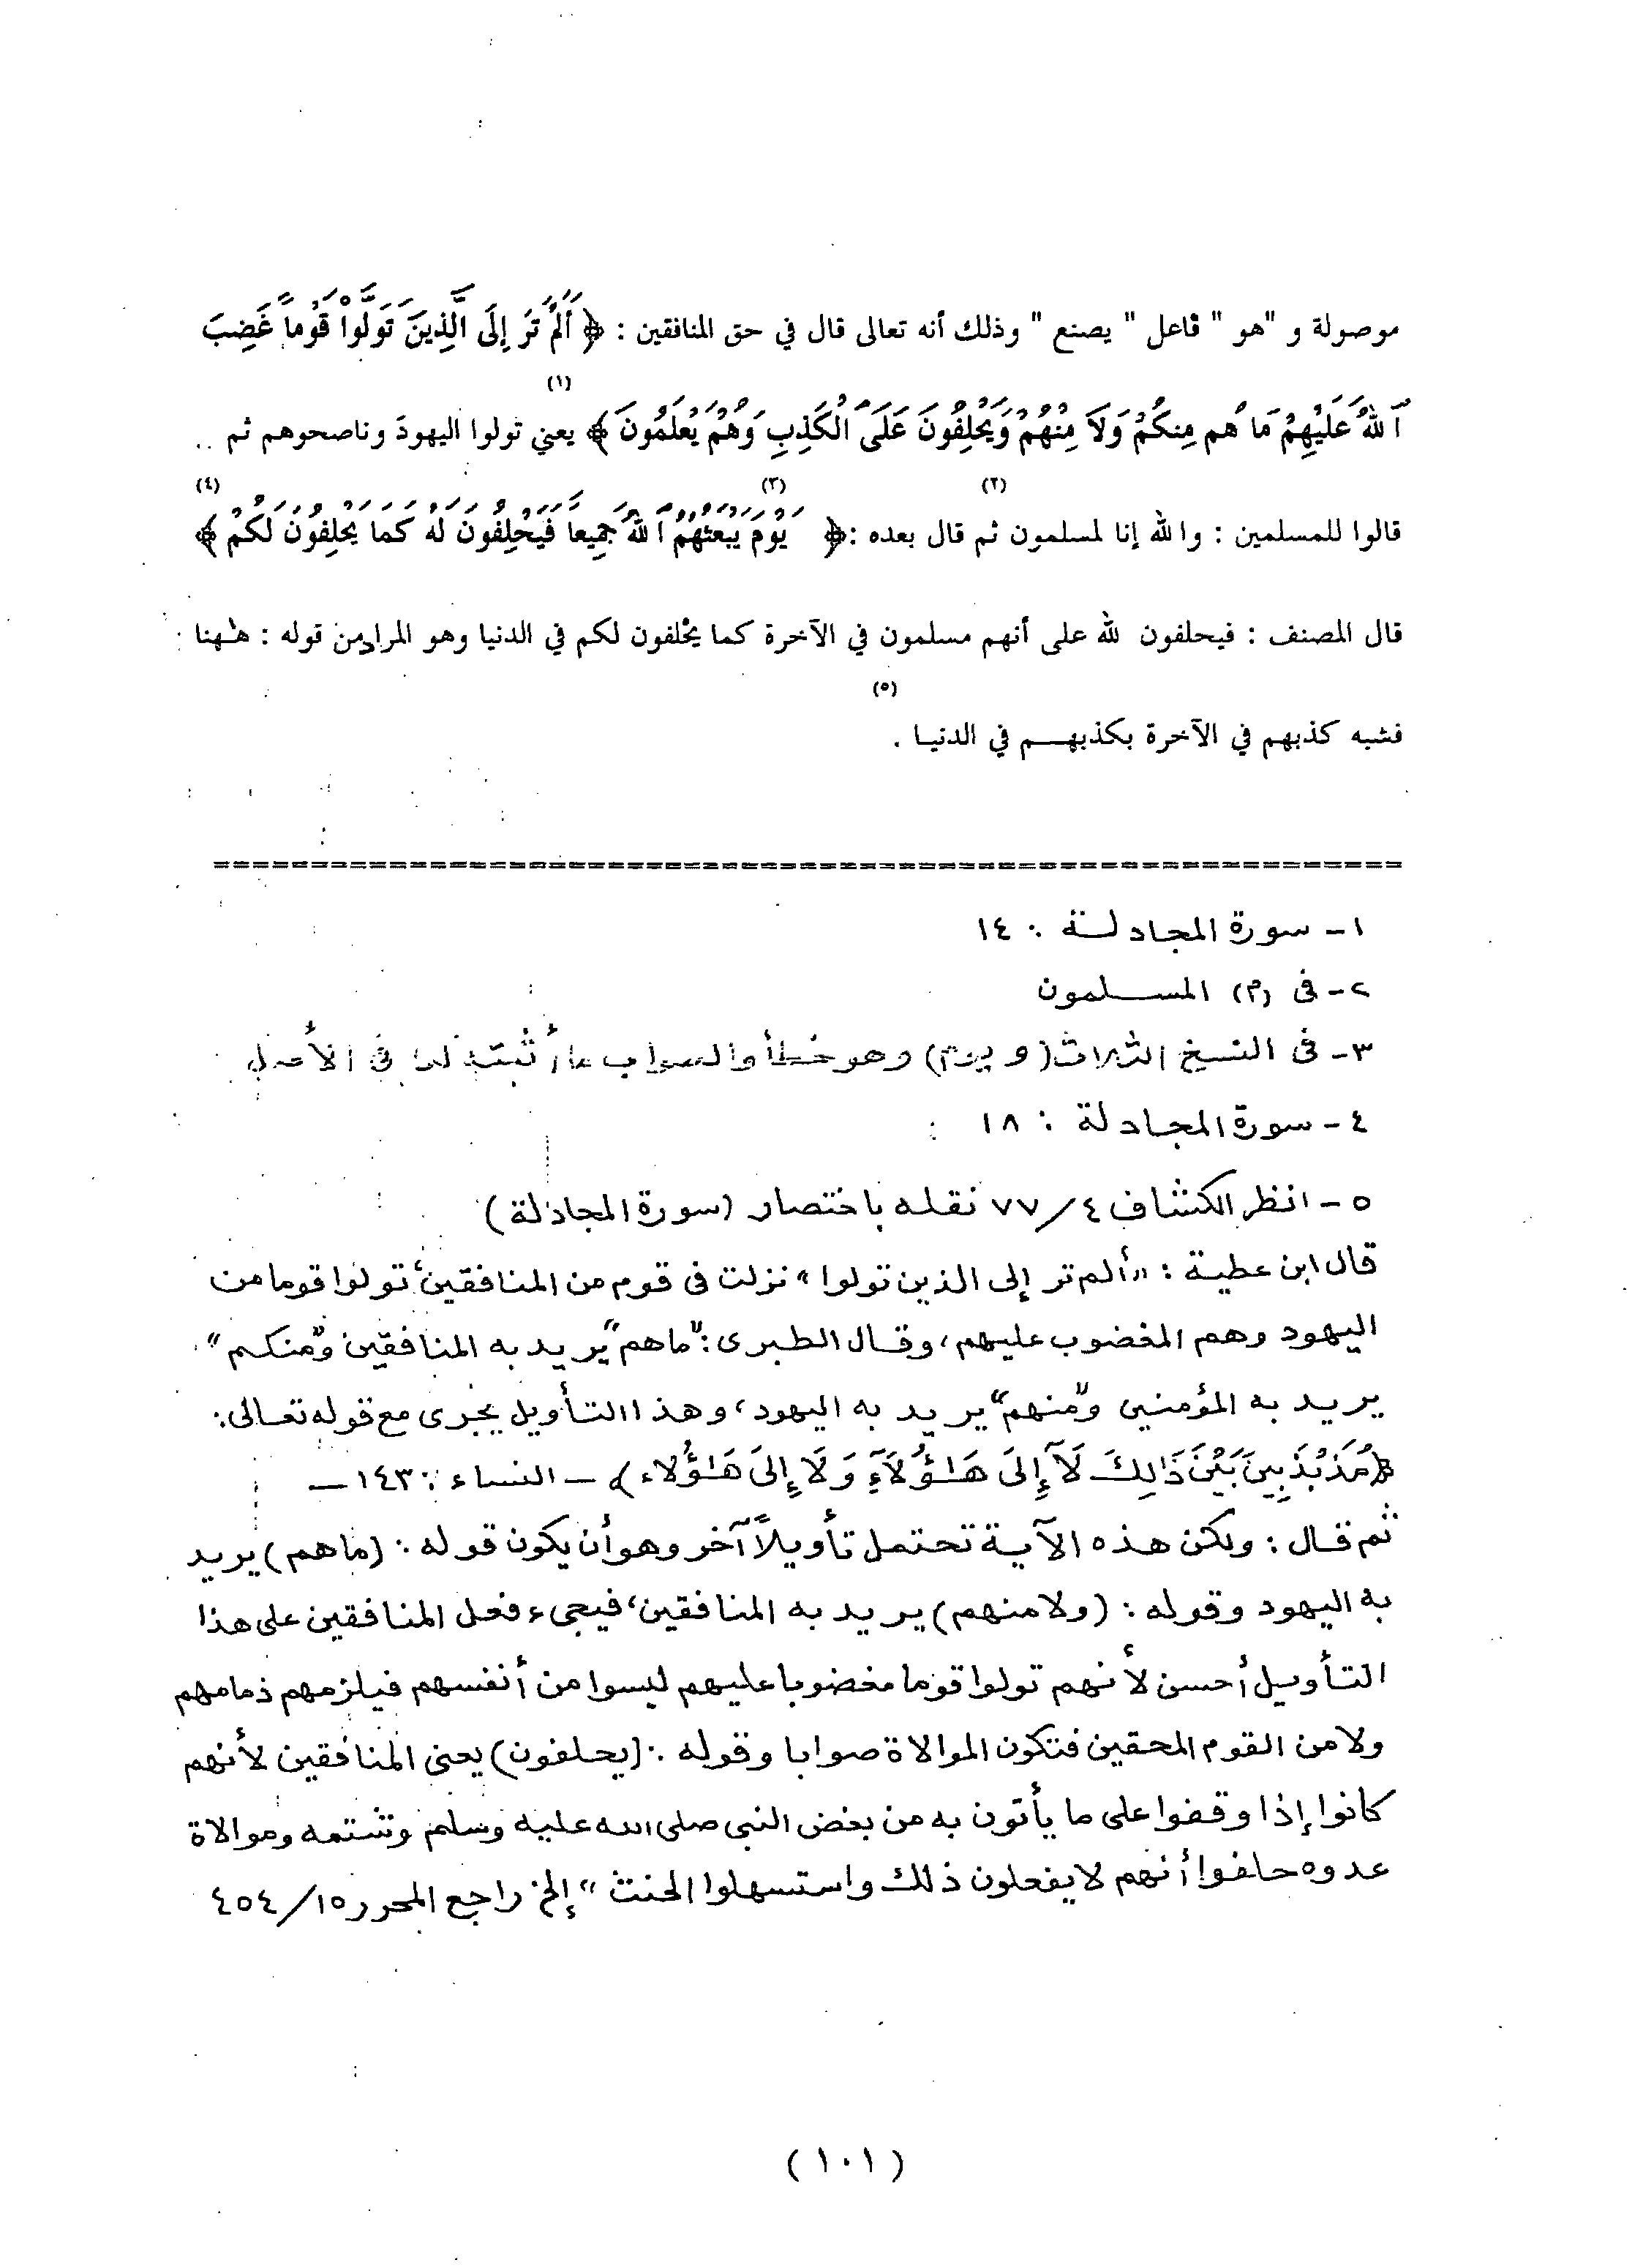 موصولة و "هو" فاعل "يصنع" وذلك أنه تعالى قال في حق المنافقين : ﴿ أَلَمْ تَرَ إِلَى الَّذِينَ تَوَلَّوْا قَوْماً غَضِبَ
(١)
اَللهُ عَلَيْهِمْ مَا هُم مِنكُمْ وَلَا مِنْهُمْ وَيَحْلِفُونَ عَلَى الْكَذِبِ وَهُمْ يَعْلَمُونَ ﴾ يعني تولوا اليهودَ وناصحوهم ثم ..
(٢) (٣) (٤)
قالوا للمسلمين : والله إنا لمسلمون ثم قال بعده :﴿ يَوْمَ يَبْعَثُهُمُ اَللهُ جَمِيعاً فَيَحْلِفُونَ لَهُ كَمَا يَحْلِفُونَ لَكُمْ ﴾
قال المصنف : فيحلفون لله على أنهم مسلمون في الآخرة كما يحْلفون لكم في الدنيا وهو المراد من قوله : هٰهنا
(٥)
فشبه كذبهم في الآخرة بكذبهم في الدنيا .
١- سورة المجادلة : ١٤
٢- فى (م) المسلمون
٣- فى النسخ الثلاث (و يوم) وهو خطأ والصواب ما أُثبتّه كما فى الأصل
٤- سورة المجادلة : ١٨
٥- انظر الكشاف ٤/٧٧ نقله باختصار (سورة المجادلة)
قال ابن عطية : "ألم تر إلى الذين تولوا" نزلت فى قوم من المنافقين، تولوا قوما من
اليهود وهم المغضوب عليهم، وقال الطبرى : "ما هم" يريد به المنافقين و"منكم"
يريد به المؤمنين و"منهم" يريد به اليهود، وهذا التأويل يجرى مع قوله تعالى :
﴿مُّذَبْذَبِينَ بَيْنَ ذَٰلِكَ لَآ إِلَىٰ هَٰؤُلَآءِ وَلَا إِلَىٰ هَٰؤُلاء﴾ - النساء : ١٤٣ -
ثم قال : ولكن هذه الآية تحتمل تأويلاً آخر وهو أن يكون قوله : (ما هم) يريد
به اليهود وقوله : (ولا منهم) يريد به المنافقين، فيجىء فعل المنافقين على هذا
التأويل أحسن لأنهم تولوا قوما مغضوبا عليهم ليسوا من أنفسهم فيلزمهم ذمامهم
ولا من القوم المحقين فتكون الموالاة صوابا وقوله : (يحلفون) يعنى المنافقين لأنهم
كانوا إذا وقفوا على ما يأتون به من بغض النبى صلى الله عليه وسلم وشتمه وموالاة
عدوه حلفوا أنهم لا يفعلون ذلك واستسهلوا الحنث" إلخ راجع المحرر ١٥/٤٥٤
(١٠١)